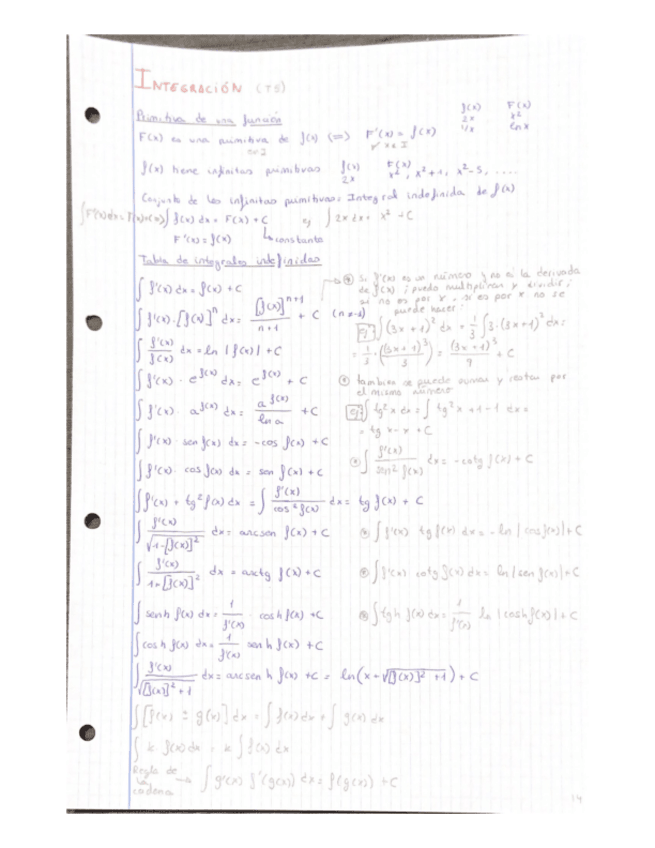 INTEGRACIÓN (T5)
Primitiva de una función
f(x) F(x)
2x x²
1/x ln x
F(x) es una primitiva de f(x) (=) F'(x) = f(x)
∀ x ∈ I
f(x) tiene infinitas primitivas f(x) F(x)
2x x², x²+1, x²-5, ....
Conjunto de las infinitas primitivas: Integral indefinida de f(x)
∫ f(x) dx = F(x) + C ej ∫ 2x dx = x² + C
F'(x) = f(x) constante
Tabla de integrales indefinidas
∫ f'(x) dx = f(x) + C
∫ f'(x) · [f(x)]ⁿ dx = [f(x)]ⁿ⁺¹ / n+1 + C
∫ f'(x) / f(x) dx = ln |f(x)| + C
∫ f'(x) · e^f(x) dx = e^f(x) + C
∫ f'(x) · a^f(x) dx = a^f(x) / ln a + C
∫ f'(x) · sen f(x) dx = -cos f(x) + C
∫ f'(x) · cos f(x) dx = sen f(x) + C
∫ f'(x) + tg² f(x) dx = ∫ f'(x) / cos² f(x) dx = tg f(x) + C
∫ f'(x) / √1-[f(x)]² dx = arcsen f(x) + C
∫ f'(x) / 1+[f(x)]² dx = arctg f(x) + C
∫ senh f(x) dx = 1 / f'(x) · cosh f(x) + C
∫ cosh f(x) dx = 1 / f'(x) senh f(x) + C
∫ f'(x) / √[f(x)]²+1 dx = arcsenh f(x) + C = ln(x + √[f(x)]² + 1) + C
∫ [f(x) ± g(x)] dx = ∫ f(x) dx ± ∫ g(x) dx
∫ k · f(x) dx = k ∫ f(x) dx
Regla de la cadena → ∫ g'(x) f'(g(x)) dx = f(g(x)) + C
Si f'(x) es un número y no es la derivada
de f(x); puedo multiplicar y dividir;
si no es por x. si es por x no se
puede hacer:
ej ∫ (3x+1)² dx = 1/3 ∫ 3·(3x+1)² dx =
= 1/3 · ((3x+1)³ / 3) = (3x+1)³ / 9 + C
también se puede sumar y restar por
el mismo número
ej ∫ tg² x dx = ∫ tg² x + 1 - 1 dx =
= tg x - x + C
∫ f'(x) / sen² f(x) dx = -cotg f(x) + C
∫ f'(x) tg f(x) dx = -ln |cos f(x)| + C
∫ f'(x) cotg f(x) dx = ln |sen f(x)| + C
∫ tgh f(x) dx = 1 / f'(x) ln |cosh f(x)| + C
14